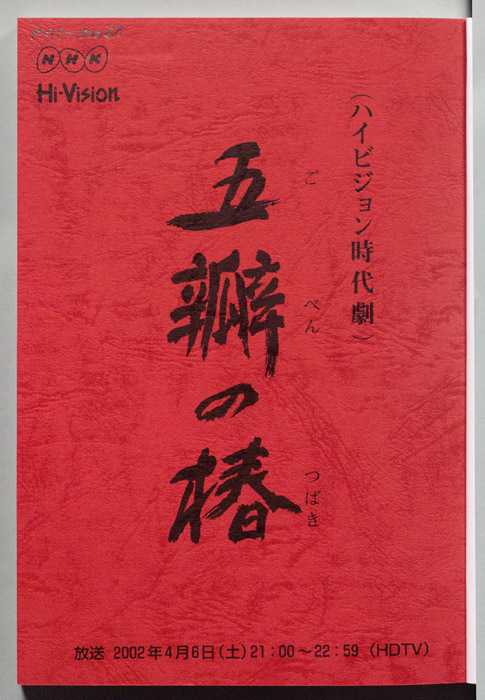 NHK
Hi-Vision
（ハイビジョン時代劇）
五瓣の椿
ご
べん
つばき
放送 2002年4月6日（土）21：00～22：59（HDTV）